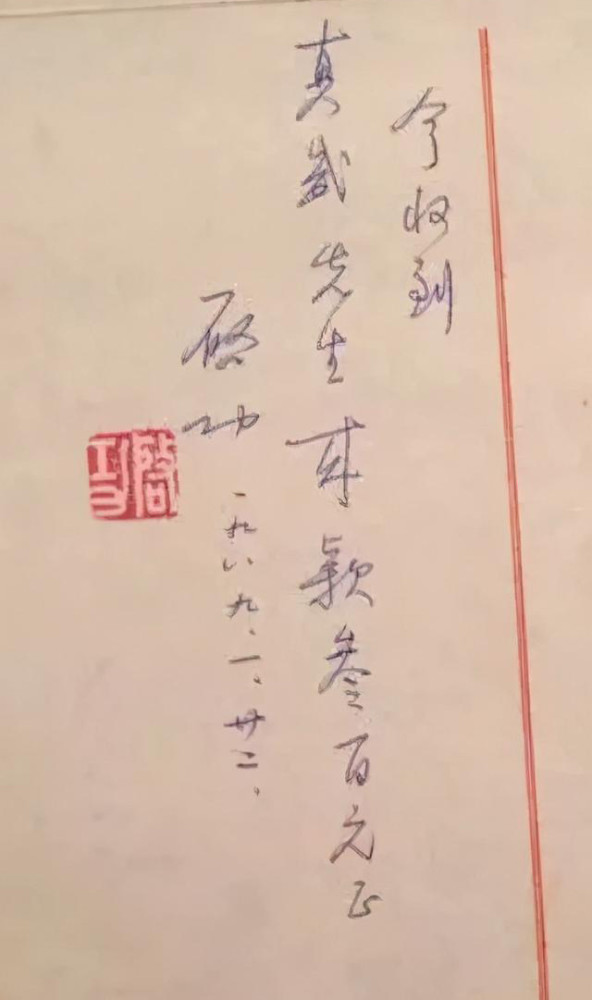 今收到
真 先生 款叁百元正
启功
一九六九、一、廿二、
啓功